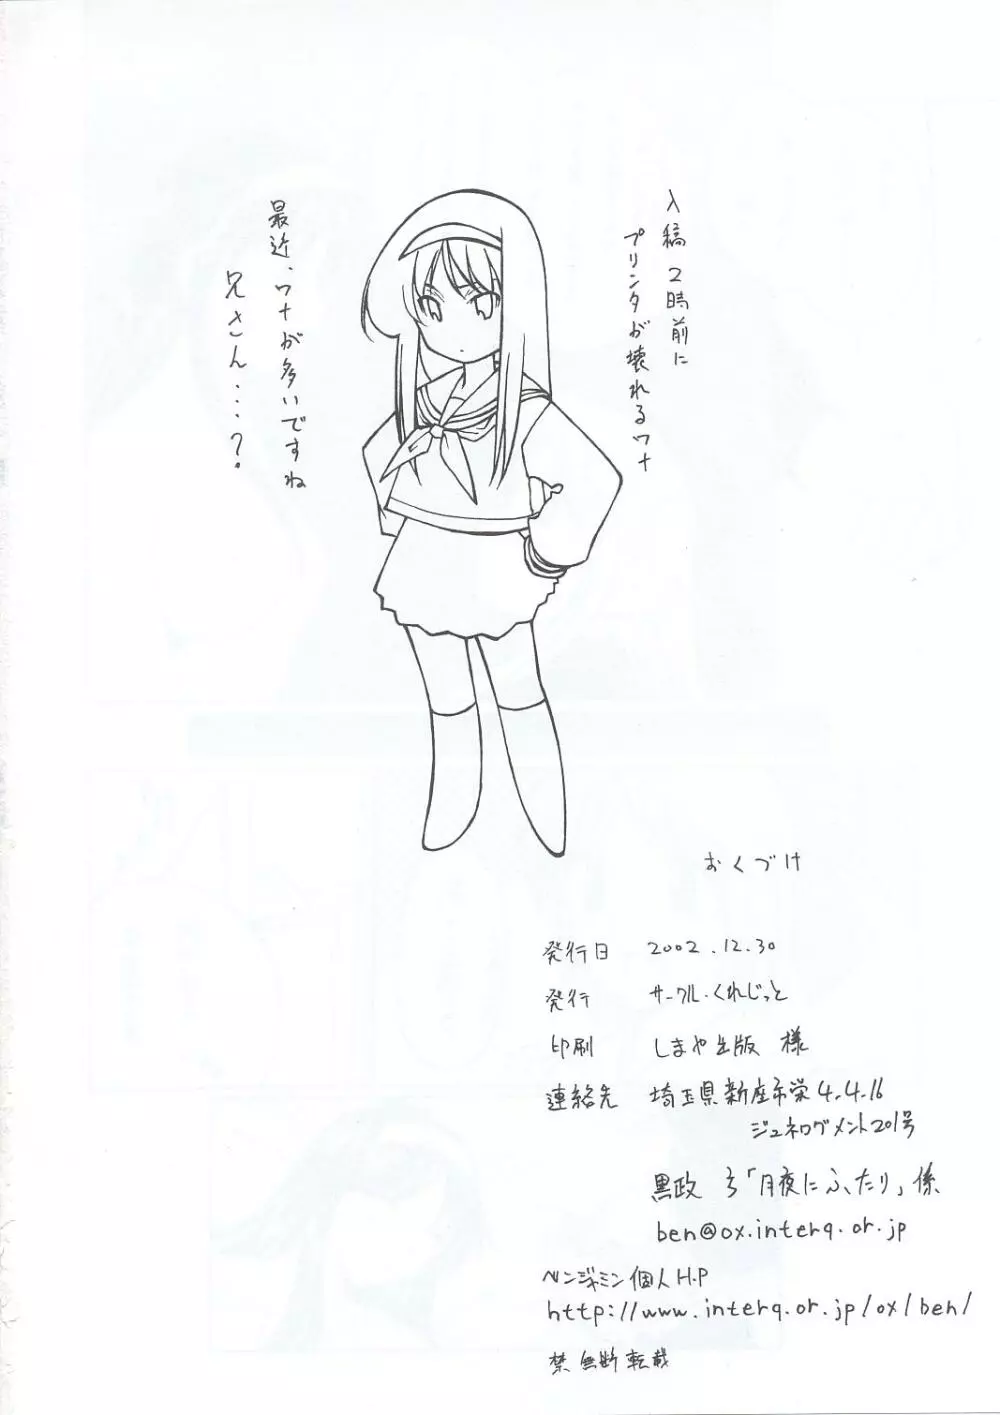 入稿2時前に
プリンタが壊れるワナ
最近、ワナが多いですね
兄さん・・・?
おくづけ
発行日 2002.12.30
発行 サークル・くれじっと
印刷 しまや出版 様
連絡先 埼玉県新座市栄4-4-16
ジュネログメント201号
黒政 「月夜にふたり」係
ben@ox.interq.or.jp
ベンジャミン個人H.P
http://www.interq.or.jp/ox/ben/
禁無断転載